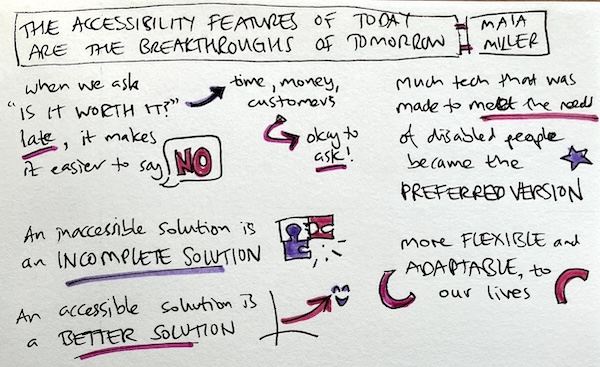 THE ACCESSIBILITY FEATURES OF TODAY
ARE THE BREAKTHROUGHS OF TOMORROW
MAIA
MILLER
when we ask
"IS IT WORTH IT?"
late, it makes
it easier to say
NO
time, money,
customers
okay to
ask!
much tech that was
made to meet the needs
of disabled people
became the
PREFERRED VERSION
An inaccessible solution is
an INCOMPLETE SOLUTION
more FLEXIBLE and
ADAPTABLE, to
our lives
An accessible solution is
a BETTER SOLUTION